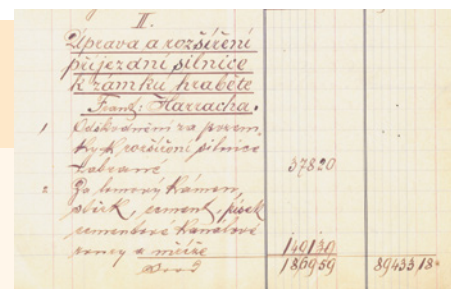 II.
Úprava a rozšíření
příjezdní silnice
k zámku hraběte
Franz. Harracha.
1 Odškodnění za pozem.
ky k rozšíření silnice
zabrané 378 20
2 Za lomový kámen,
štěrk, cement, písek
cementové kanálové
roury a mříže 1401 30
1869 59 89433 18